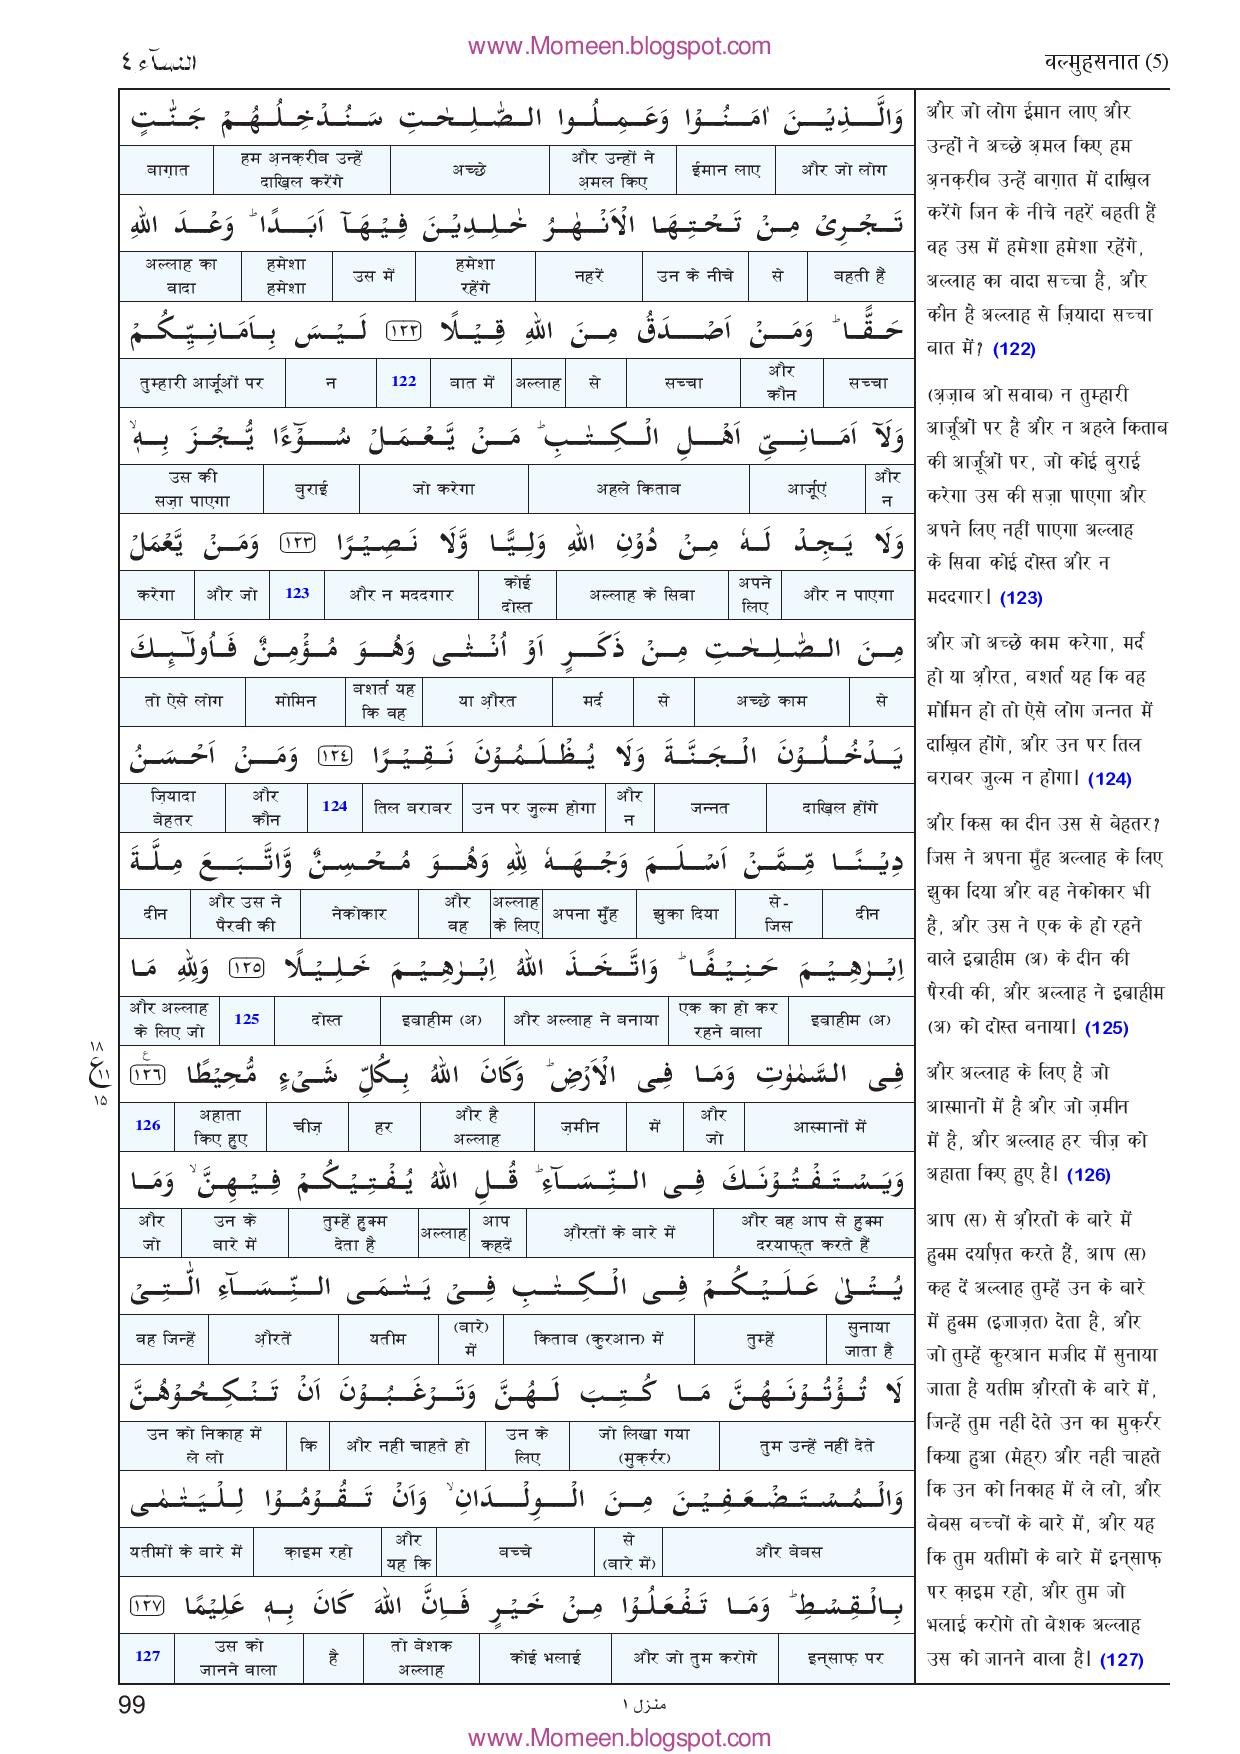 www.Momeen.blogspot.com
النسآء ٤
वल्मुहसनात (5)
وَالَّذِيْنَ اٰمَنُوْا وَعَمِلُوا الصّٰلِحٰتِ سَنُدْخِلُهُمْ جَنّٰتٍ
और जो लोग ईमान लाए और उन्हों ने अ़मल किए अच्छे हम अ़नक़रीब उन्हें दाख़िल करेंगे बाग़ात
تَجْرِىْ مِنْ تَحْتِهَا الْاَنْهٰرُ خٰلِدِيْنَ فِيْهَآ اَبَدًا ؕ وَعْدَ اللهِ
बहती हैं से उन के नीचे नहरें हमेशा रहेंगे उस में हमेशा हमेशा अल्लाह का वादा
حَقًّا ؕ وَمَنْ اَصْدَقُ مِنَ اللهِ قِيْلًا ١٢٢ لَيْسَ بِاَمَانِيِّكُمْ
सच्चा और कौन सच्चा से अल्लाह बात में 122 न तुम्हारी आर्ज़ूओं पर
وَلَآ اَمَانِىِّ اَهْلِ الْكِتٰبِ ؕ مَنْ يَّعْمَلْ سُوْٓءًا يُّجْزَ بِهٖ ۙ
और न आर्ज़ूएं अहले किताब जो करेगा बुराई उस की सज़ा पाएगा
وَلَا يَجِدْ لَهٗ مِنْ دُوْنِ اللهِ وَلِيًّا وَّلَا نَصِيْرًا ١٢٣ وَمَنْ يَّعْمَلْ
और न पाएगा अपने लिए अल्लाह के सिवा कोई दोस्त और न मददगार 123 और जो करेगा
مِنَ الصّٰلِحٰتِ مِنْ ذَكَرٍ اَوْ اُنْثٰى وَهُوَ مُؤْمِنٌ فَاُولٰٓئِكَ
से अच्छे काम से मर्द या औ़रत बशर्त यह कि वह मोमिन तो ऐसे लोग
يَدْخُلُوْنَ الْجَنَّةَ وَلَا يُظْلَمُوْنَ نَقِيْرًا ١٢٤ وَمَنْ اَحْسَنُ
दाख़िल होंगे जन्नत और न उन पर ज़ुल्म होगा तिल बराबर 124 और कौन ज़ियादा बेहतर
دِيْنًا مِّمَّنْ اَسْلَمَ وَجْهَهٗ لِلّٰهِ وَهُوَ مُحْسِنٌ وَّاتَّبَعَ مِلَّةَ
दीन से-जिस झुका दिया अपना मुँह अल्लाह के लिए और वह नेकोकार और उस ने पैरवी की दीन
اِبْرٰهِيْمَ حَنِيْفًا ؕ وَاتَّخَذَ اللهُ اِبْرٰهِيْمَ خَلِيْلًا ١٢٥ وَلِلّٰهِ مَا
इब्राहीम (अ) एक का हो कर रहने वाला और अल्लाह ने बनाया इब्राहीम (अ) दोस्त 125 और अल्लाह के लिए जो
فِى السَّمٰوٰتِ وَمَا فِى الْاَرْضِ ؕ وَكَانَ اللهُ بِكُلِّ شَىْءٍ مُّحِيْطًا ١٢٦
١٨
ع ١١
١٥
आस्मानों में और जो में ज़मीन और है अल्लाह हर चीज़ अहाता किए हुए 126
وَيَسْتَفْتُوْنَكَ فِى النِّسَآءِ ؕ قُلِ اللهُ يُفْتِيْكُمْ فِيْهِنَّ ۙ وَمَا
और वह आप से हुक्म दरयाफ़्त करते हैं औ़रतों के बारे में आप कहदें अल्लाह तुम्हें हुक्म देता है उन के बारे में और जो
يُتْلٰى عَلَيْكُمْ فِى الْكِتٰبِ فِىْ يَتٰمَى النِّسَآءِ الّٰتِىْ
सुनाया जाता है तुम्हें किताब (कुरआन) में (बारे) में यतीम औ़रतें वह जिन्हें
لَا تُؤْتُوْنَهُنَّ مَا كُتِبَ لَهُنَّ وَتَرْغَبُوْنَ اَنْ تَنْكِحُوْهُنَّ
तुम उन्हें नहीं देते जो लिखा गया (मुक़र्रर) उन के लिए और नहीं चाहते हो कि उन को निकाह में ले लो
وَالْمُسْتَضْعَفِيْنَ مِنَ الْوِلْدَانِ ۙ وَاَنْ تَقُوْمُوْا لِلْيَتٰمٰى
और बेबस से (बारे में) बच्चे और यह कि क़ाइम रहो यतीमों के बारे में
بِالْقِسْطِ ؕ وَمَا تَفْعَلُوْا مِنْ خَيْرٍ فَاِنَّ اللهَ كَانَ بِهٖ عَلِيْمًا ١٢٧
इन्साफ़ पर और जो तुम करोगे कोई भलाई तो बेशक अल्लाह है उस को जानने वाला 127
और जो लोग ईमान लाए और
उन्हों ने अच्छे अ़मल किए हम
अ़नक़रीब उन्हें बाग़ात में दाख़िल
करेंगे जिन के नीचे नहरें बहती हैं
वह उस में हमेशा हमेशा रहेंगे,
अल्लाह का वादा सच्चा है, और
कौन है अल्लाह से ज़ियादा सच्चा
बात में? (122)
(अ़ज़ाब ओ सवाब) न तुम्हारी
आर्ज़ूओं पर है और न अहले किताब
की आर्ज़ूओं पर, जो कोई बुराई
करेगा उस की सज़ा पाएगा और
अपने लिए नहीं पाएगा अल्लाह
के सिवा कोई दोस्त और न
मददगार। (123)
और जो अच्छे काम करेगा, मर्द
हो या औ़रत, बशर्त यह कि वह
मोमिन हो तो ऐसे लोग जन्नत में
दाख़िल होंगे, और उन पर तिल
बराबर ज़ुल्म न होगा। (124)
और किस का दीन उस से बेहतर?
जिस ने अपना मुँह अल्लाह के लिए
झुका दिया और वह नेकोकार भी
है, और उस ने एक के हो रहने
वाले इब्राहीम (अ) के दीन की
पैरवी की, और अल्लाह ने इब्राहीम
(अ) को दोस्त बनाया। (125)
और अल्लाह के लिए है जो
आस्मानों में है और जो ज़मीन
में है, और अल्लाह हर चीज़ को
अहाता किए हुए है। (126)
आप (स) से औ़रतों के बारे में
हुक्म दर्याफ़्त करते हैं, आप (स)
कह दें अल्लाह तुम्हें उन के बारे
में हुक्म (इजाज़त) देता है, और
जो तुम्हें कुरआन मजीद में सुनाया
जाता है यतीम औ़रतों के बारे में,
जिन्हें तुम नहीं देते उन का मुक़र्रर
किया हुआ (मेह्र) और नहीं चाहते
कि उन को निकाह में ले लो, और
बेबस बच्चों के बारे में, और यह
कि तुम यतीमों के बारे में इन्साफ़
पर क़ाइम रहो, और तुम जो
भलाई करोगे तो बेशक अल्लाह
उस को जानने वाला है। (127)
99
منزل ١
www.Momeen.blogspot.com